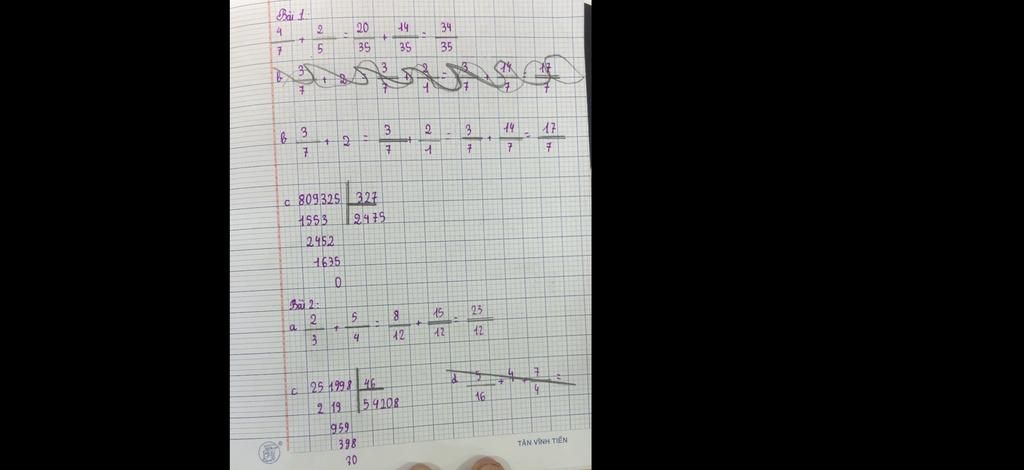 Bài 1:
4/7 + 2/5 = 20/35 + 14/35 = 34/35
b 3/7 + 2 = 3/7 + 2/1 = 3/7 + 14/7 = 17/7
b 3/7 + 2 = 3/7 + 2/1 = 3/7 + 14/7 = 17/7
c 809325 | 327
1553 | 2475
2452
1635
0
Bài 2:
a 2/3 + 5/4 = 8/12 + 15/12 = 23/12
c 251998 | 46
219 | 54208
959
398
70
d 5/16 + 4 + 7/4 =
TÂN VĨNH TIẾN